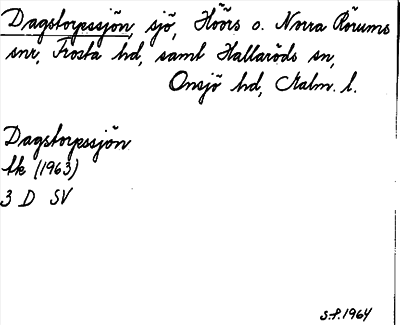 Dagstorpssjön, sjö, Höörs o. Norra Rörums
snr, Frosta hd, samt Hallaröds sn,
Onsjö hd, Malm. l.
Dagstorpssjön
tk (1963)
3 D SV
S.P. 1964